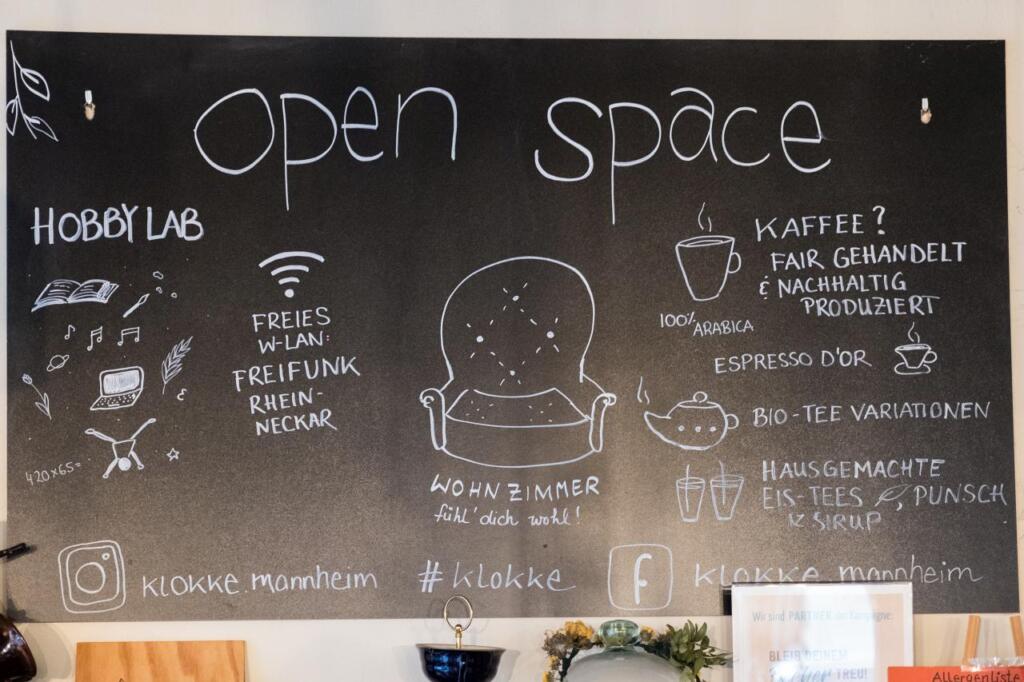 open space
HOBBY LAB
420x65=
FREIES
W-LAN:
FREIFUNK
RHEIN-
NECKAR
WOHNZIMMER
fühl' dich wohl!
KAFFEE?
FAIR GEHANDELT
& NACHHALTIG
PRODUZIERT
100% ARABICA
ESPRESSO D'OR
BIO-TEE VARIATIONEN
HAUSGEMACHTE
EIS-TEES, PUNSCH
& SIRUP
klokke.mannheim
#klokke
f
klokke.mannheim
Wir sind PARTNER der Kampagne:
BLEIB DEINEM
TREU!
Allergenliste